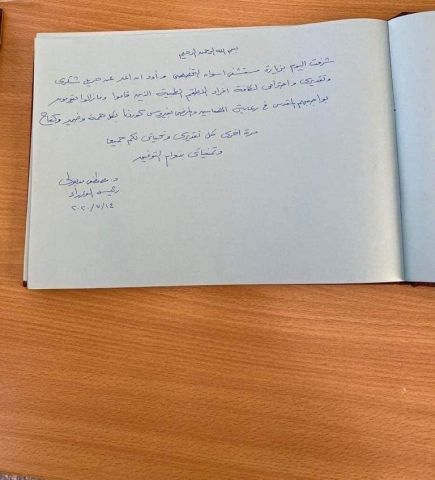 بسم الله الرحمن الرحيم
شرفت اليوم بزيارة مستشفى أسوان التخصصى وأود أن أعبر عن خالص شكرى
وتقديرى واحترامى لكافة أفراد الطاقم الطبية الذين قاموا ومازالوا يقومون
بواجبهم المقدس فى رعاية المصابين والمرضى بفيروس كورونا بكل همة وضمير وكفاح
مرة أخرى كل تقديرى وتحياتى لكم جميعا
وتمنياتى بدوام التوفيق
د. مصطفى مدبولى
رئيس الوزراء
٢٠٢٠/٧/١٤